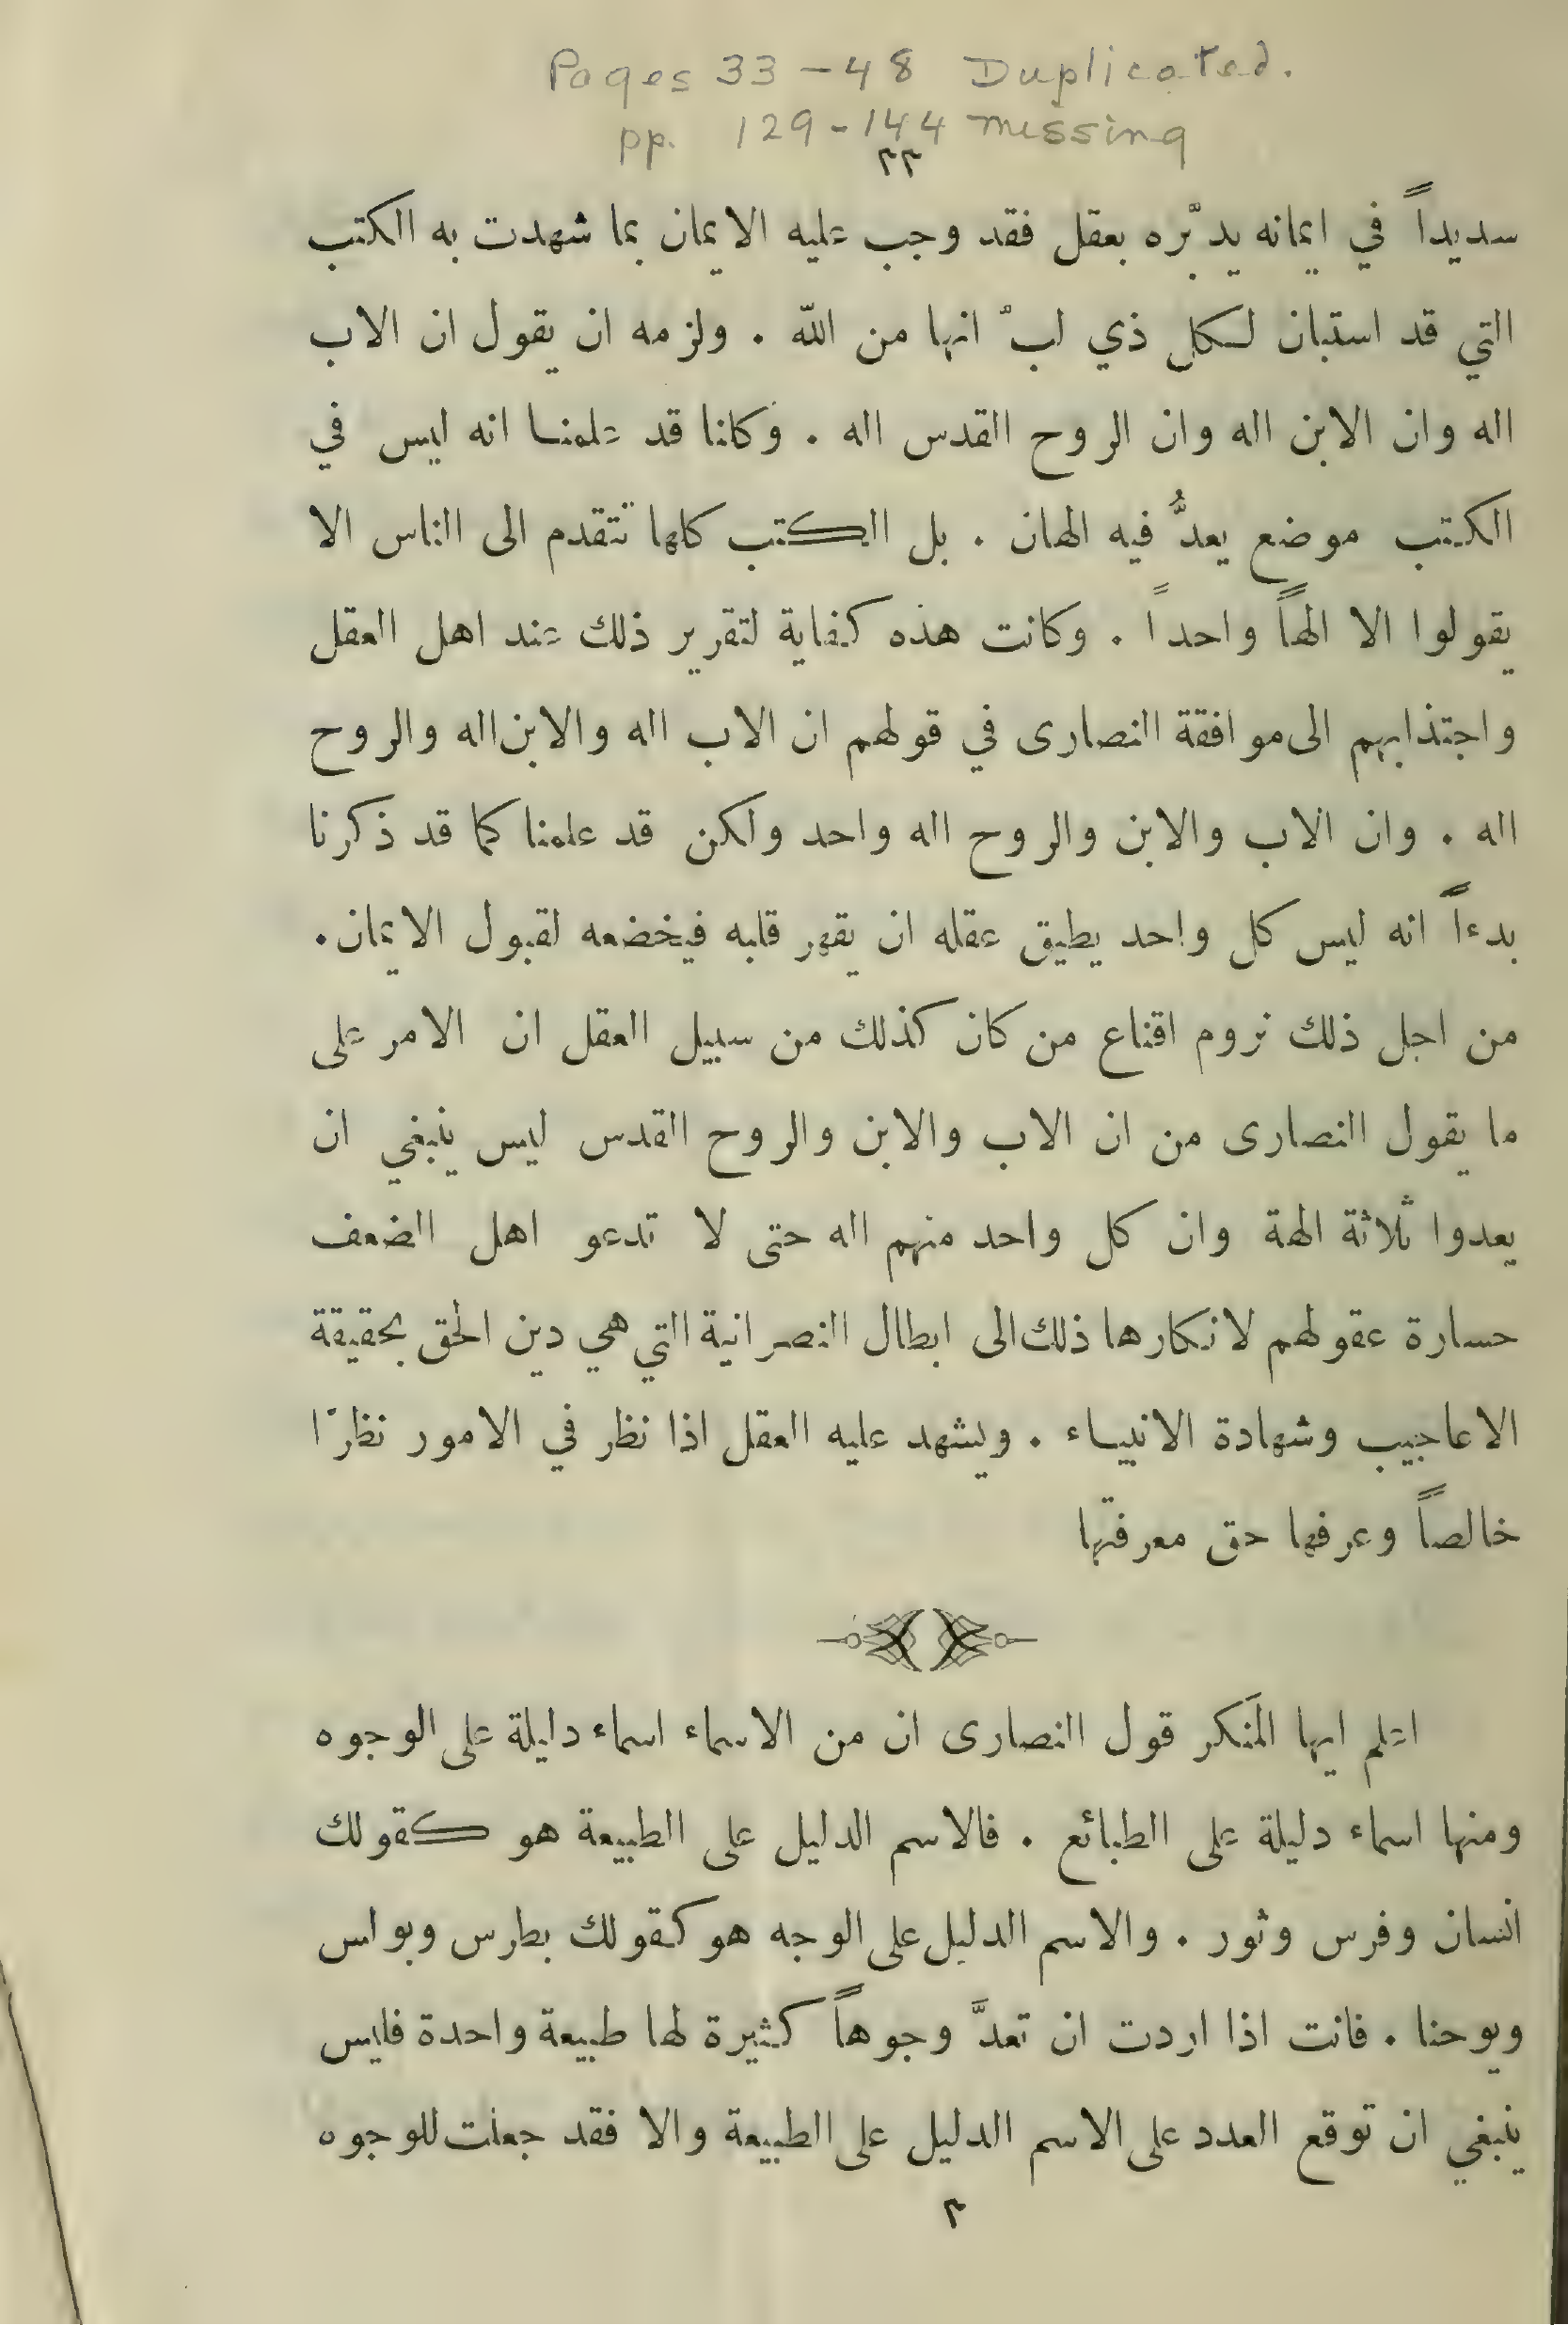 Pages 33-48 Duplicated.
pp. 129-144 missing
٣٣
سديداً في ايمانه يدبّره بعقل فقد وجب عليه الايمان بما شهدت به الكتب
التي قد استبان لكل ذي لبّ انها من الله . ولزمه ان يقول ان الاب
اله وان الابن اله وان الروح القدس اله . وكلنا قد علمنا انه ليس في
الكتب موضع يعدُّ فيه الهان . بل الكتب كلها تتقدم الى الناس الا
يقولوا الا الهاً واحداً . وكانت هذه كفاية لتقرير ذلك عند اهل العقل
واجتذابهم الى موافقة النصارى في قولهم ان الاب اله والابن اله والروح
اله . وان الاب والابن والروح اله واحد ولكن قد علمنا كما قد ذكرنا
بدءاً انه ليس كل واحد يطيق عقله ان يقهر قلبه فيخضعه لقبول الايمان.
من اجل ذلك نروم اقناع من كان كذلك من سبيل العقل ان الامر على
ما يقول النصارى من ان الاب والابن والروح القدس ليس ينبغي ان
يعدوا ثلاثة الهة وان كل واحد منهم اله حتى لا تدعو اهل الضعف
حسارة عقولهم لانكارها ذلك الى ابطال النصرانية التي هي دين الحق بحقيقة
الاعاجيب وشهادة الانبياء . ويشهد عليه العقل اذا نظر في الامور نظرًا
خالصاً وعرفها حق معرفتها
اعلم ايها المنكر قول النصارى ان من الاسماء اسماء دليلة على الوجوه
ومنها اسماء دليلة على الطبائع . فالاسم الدليل على الطبيعة هو كقولك
انسان وفرس وثور . والاسم الدليل على الوجه هو كقولك بطرس وبولس
ويوحنا . فانت اذا اردت ان تعدَّ وجوهاً كثيرة لها طبيعة واحدة فليس
ينبغي ان توقع العدد على الاسم الدليل على الطبيعة والا فقد جعلت للوجوه
٣